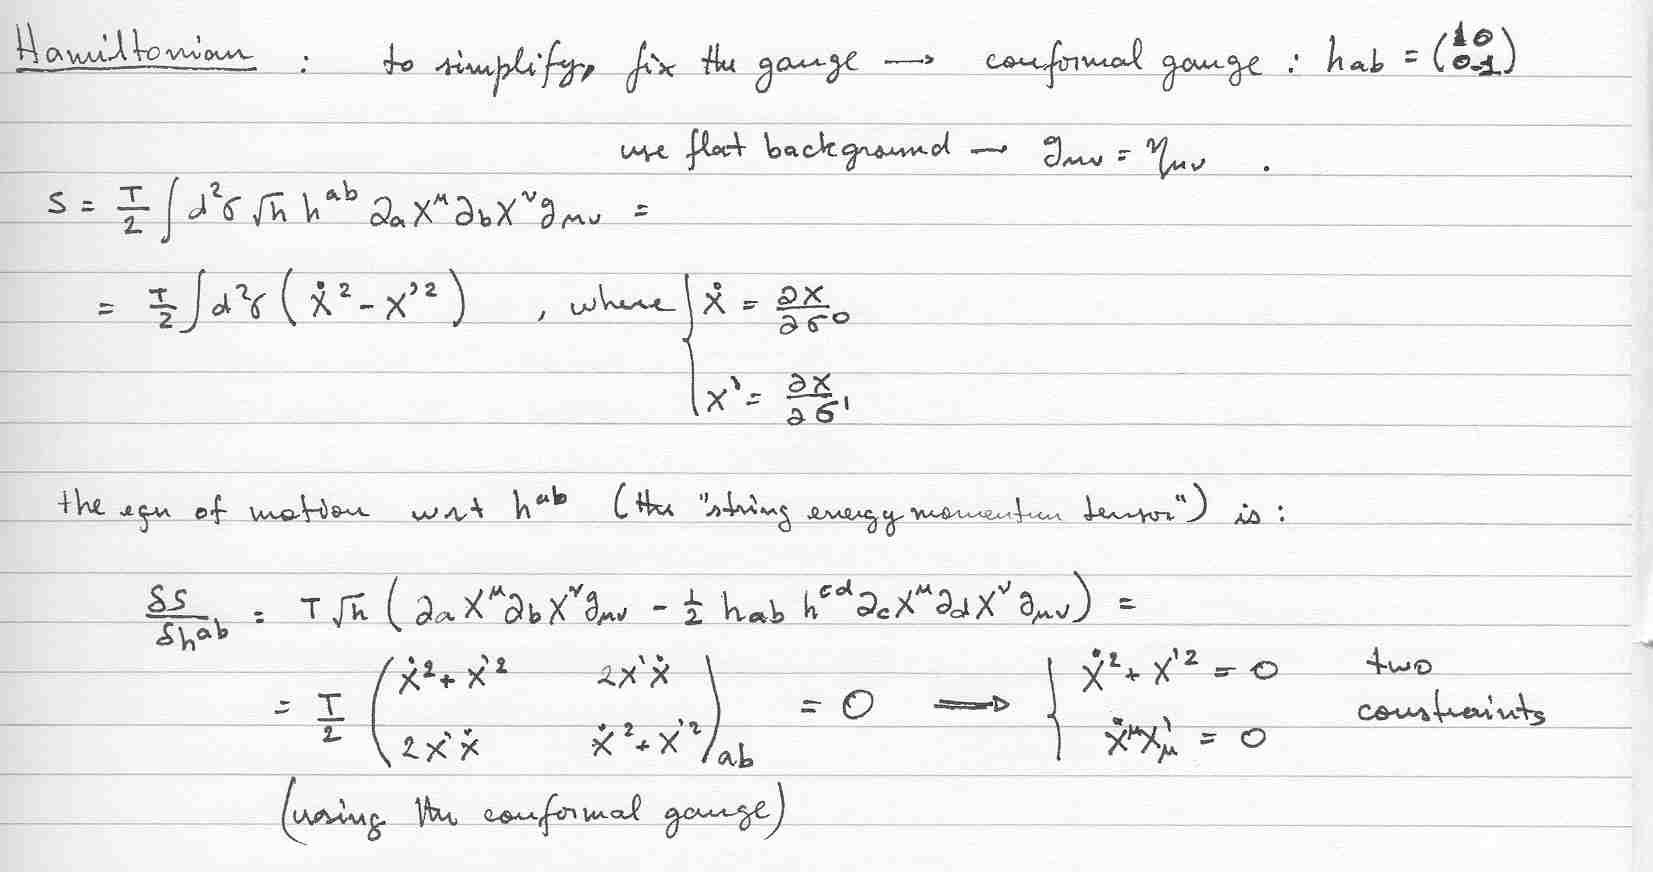 Hamiltonian : to simplify, fix the gauge → conformal gauge : hab = (1 0 0 -1)
use flat background → gμν = ημν .
S = T/2 ∫ d²σ √h h^ab ∂aX^μ ∂bX^ν gμν =
= T/2 ∫ d²σ ( Ẋ² - X'² ) , where { Ẋ = ∂X/∂σ⁰
X' = ∂X/∂σ¹
the eqn of motion wrt h^ab (the "string energy momentum tensor") is :
δS/δh^ab = T√h ( ∂aX^μ ∂bX^ν gμν - 1/2 hab h^cd ∂cX^μ ∂dX^ν gμν ) =
= T/2 ( Ẋ² + X'² 2X'Ẋ 2X'Ẋ Ẋ² + X'² )ab = 0 ⟹ { Ẋ² + X'² = 0 Ẋ^μ X'μ = 0 two constraints
(using the conformal gauge)